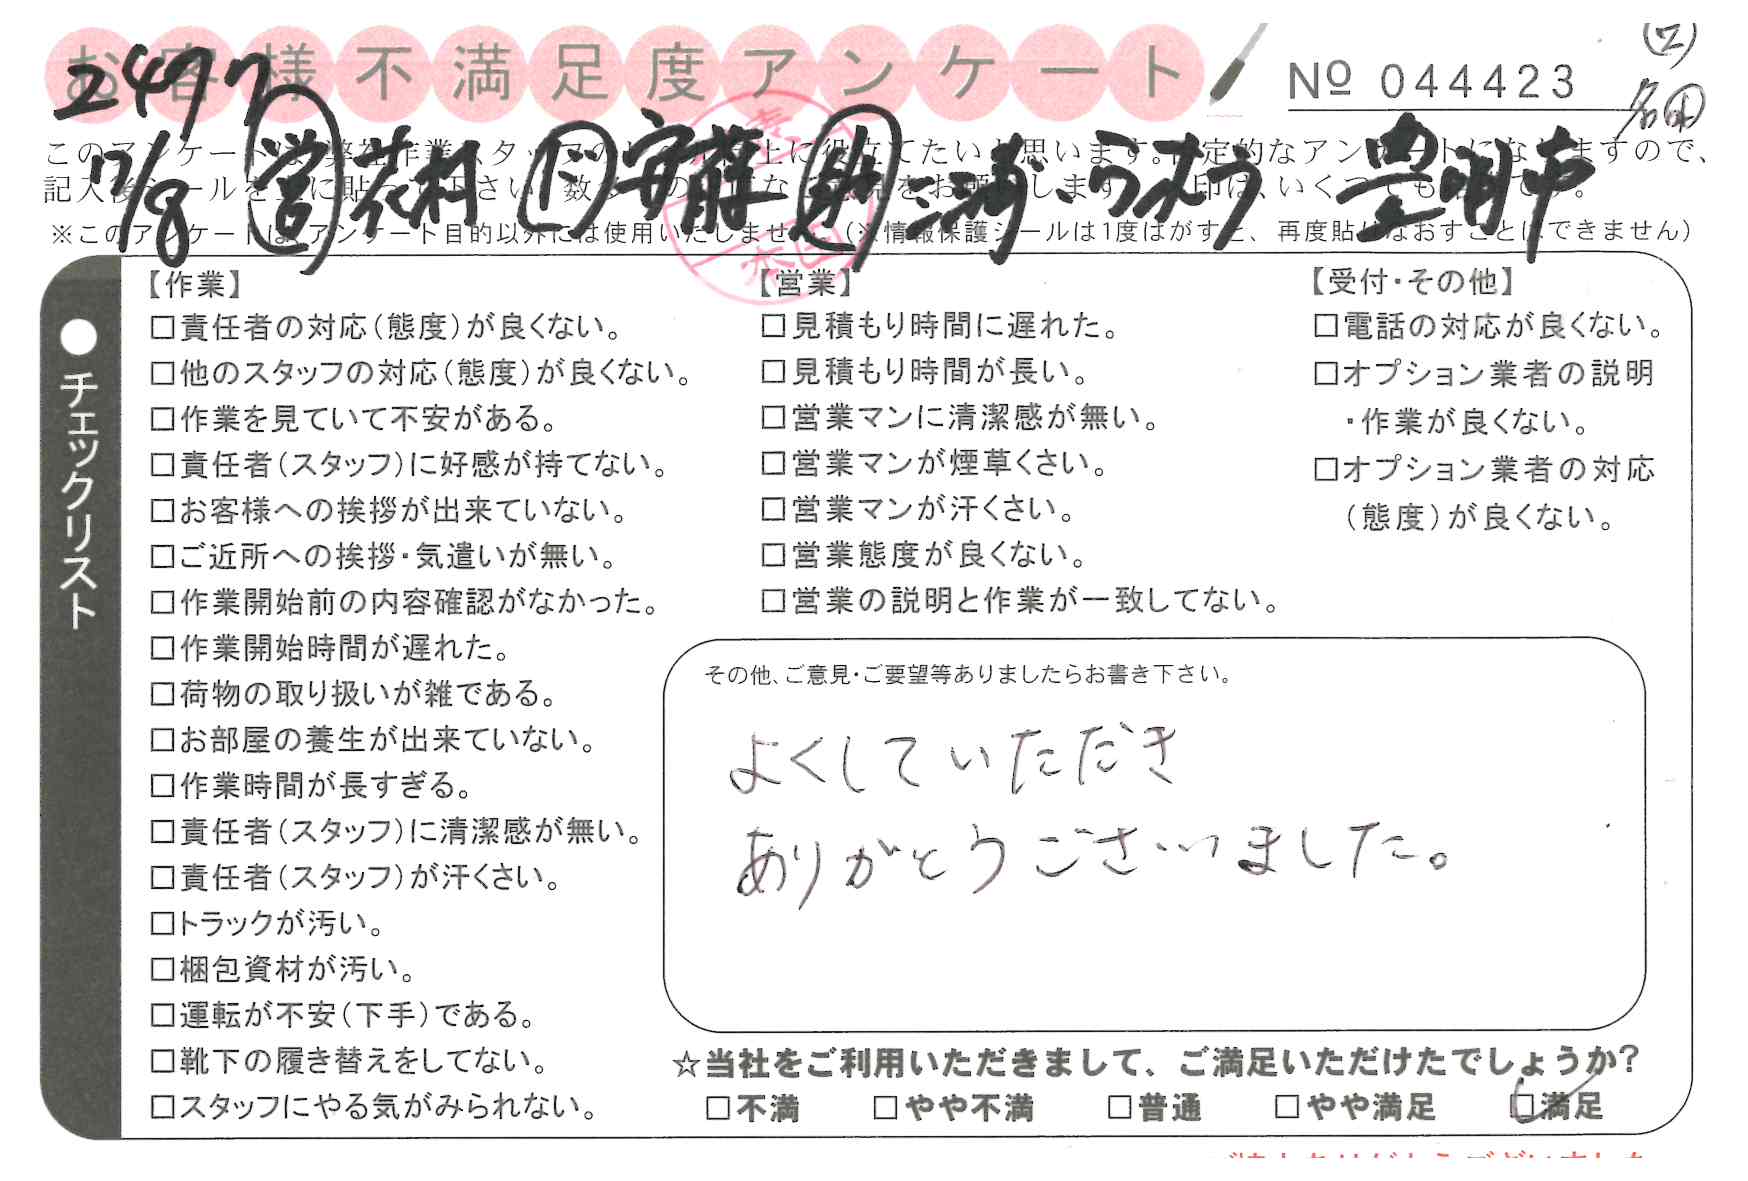 お客様不満足度アンケート
No 044423
2497
名田
17/8 営 花村 ド 安藤 助 豊明市
※このアンケートは、アンケート目的以外には使用いたしません。(※情報保護シールは1度はがすと、再度貼りなおすことはできません)
●チェックリスト
【作業】
□責任者の対応(態度)が良くない。
□他のスタッフの対応(態度)が良くない。
□作業を見ていて不安がある。
□責任者(スタッフ)に好感が持てない。
□お客様への挨拶が出来ていない。
□ご近所への挨拶・気遣いが無い。
□作業開始前の内容確認がなかった。
□作業開始時間が遅れた。
□荷物の取り扱いが雑である。
□お部屋の養生が出来ていない。
□作業時間が長すぎる。
□責任者(スタッフ)に清潔感が無い。
□責任者(スタッフ)が汗くさい。
□トラックが汚い。
□梱包資材が汚い。
□運転が不安(下手)である。
□靴下の履き替えをしてない。
□スタッフにやる気がみられない。
【営業】
□見積もり時間に遅れた。
□見積もり時間が長い。
□営業マンに清潔感が無い。
□営業マンが煙草くさい。
□営業マンが汗くさい。
□営業態度が良くない。
□営業の説明と作業が一致してない。
【受付・その他】
□電話の対応が良くない。
□オプション業者の説明
・作業が良くない。
□オプション業者の対応
(態度)が良くない。
その他、ご意見・ご要望等ありましたらお書き下さい。
よくしていただき
ありがとうございました。
☆当社をご利用いただきまして、ご満足いただけたでしょうか?
□不満 □やや不満 □普通 □やや満足 □満足